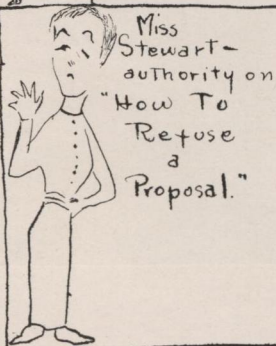 Miss
Stewart-
authority on
"How To
Refuse
a
Proposal."